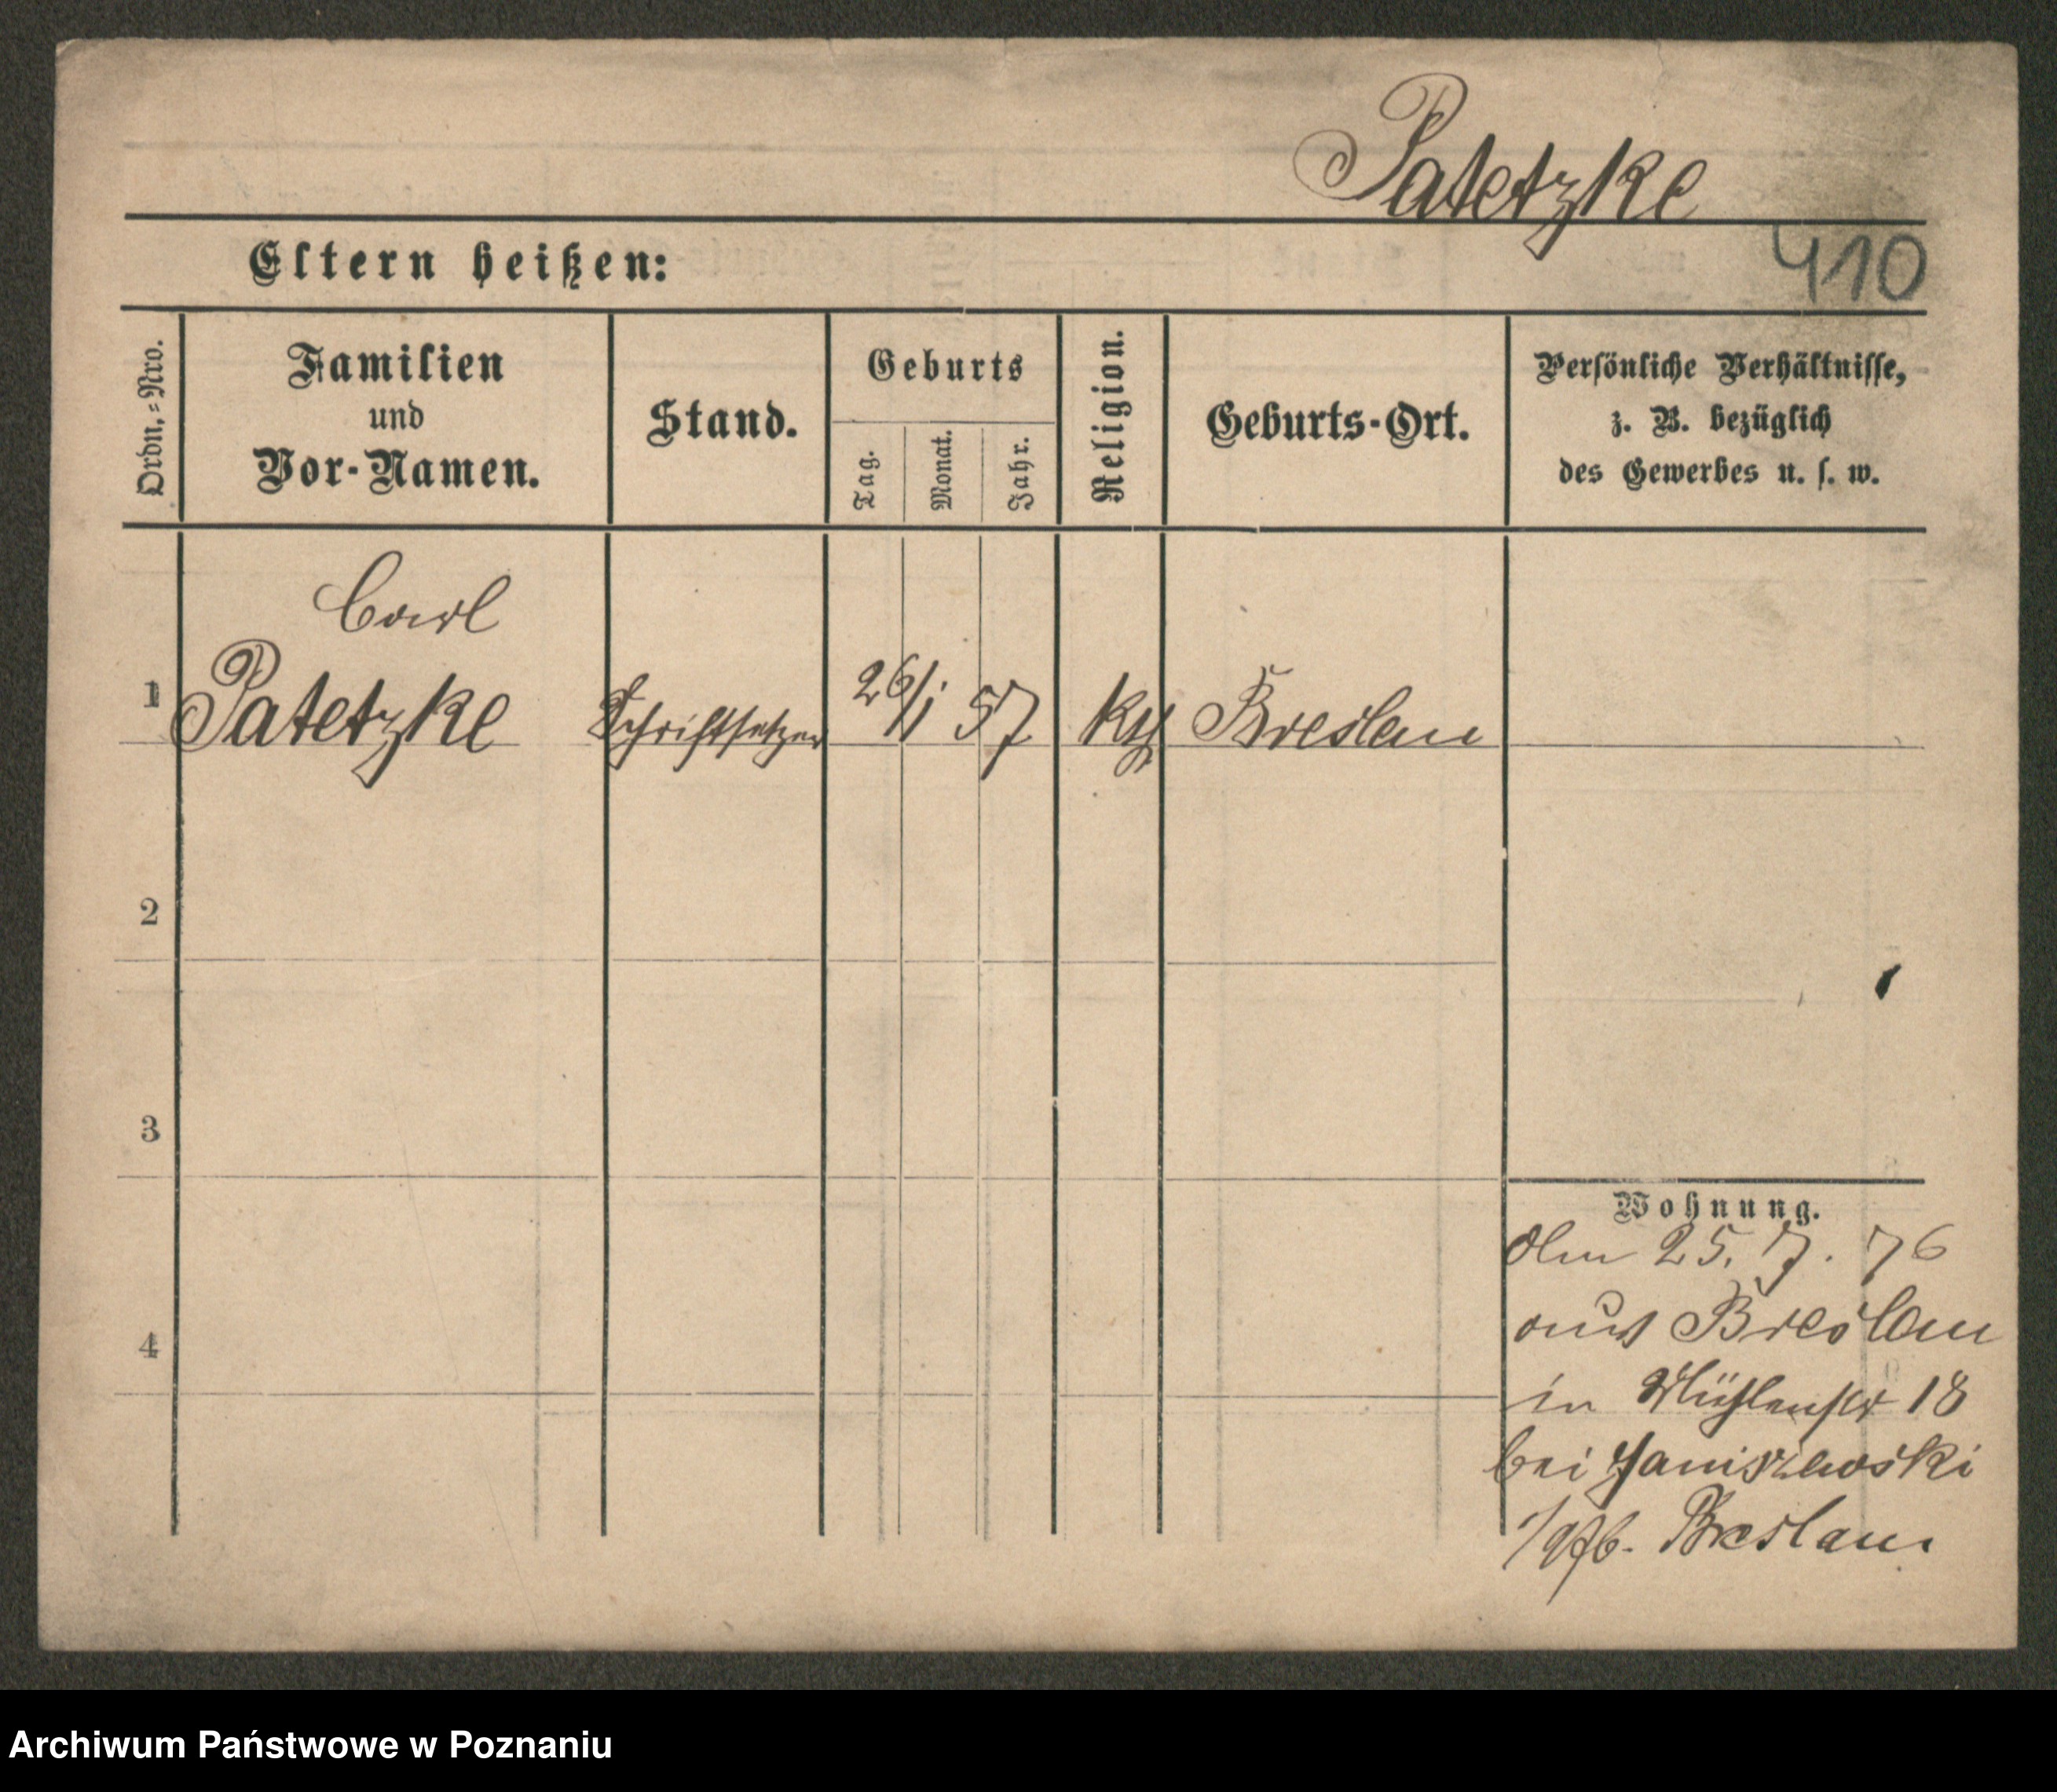 Patetzke
410
Eltern heißen:
Ordn.=Nro.
Familien
und
Vor-Namen.
Stand.
Geburts
Tag.
Monat.
Jahr.
Religion.
Geburts-Ort.
Persönliche Verhältnisse,
z. B. bezüglich
des Gewerbes u. s. w.
Carl
1 Patetzke Schriftsetzer 26/1 57 kth Breslau
2
3
4
Wohnung.
Am 25. 7. 76
aus Breslau
in Mühlenstr 18
bei Janiszewski
Breslau
Archiwum Państwowe w Poznaniu